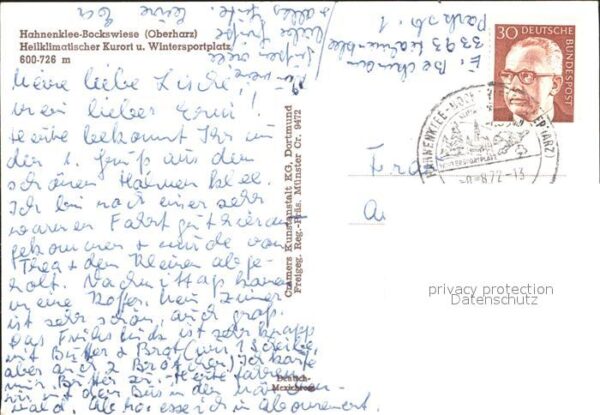 Hahnenklee-Bockswiese (Oberharz)
Heilklimatischer Kurort u. Wintersportplatz
600-726 m
Meine liebe Liesel!
mein lieber Erwin!
Heute bekommt Ihr nun
den 1. Gruß aus dem
schönen Hahnenklee.
Ich bin nach einer sehr
warmen Fahrt gut hier an-
gekommen + wurde von
Thea + den Kleinen abge-
holt. Nachmittags kamen
meine Koffer. Mein Zimmer
ist sehr schön, auch groß.
Das Frühstück ist sehr knapp
mit Butter + Brot (nur 1 Scheibe
aber auch 2 Brötchen) Ich kaufe
mir Butter zu. Heute fahren
wir mit dem Bus in den
wald. esse ich im Abonnement.
alles Gute. Eure
liebe Grüße
E.
3393 Hahnenklee
Parkstr. 1
Cramers Kunstanstalt KG. Dortmund
Freigeg. Reg.-Präs. Münster Cr. 9472
Deutsch-
Mexichrom
30
DEUTSCHE
BUNDESPOST
HAHNENKLEE-BOCKSWIESE (OBERHARZ)
WINTERSPORTPLATZ
8.72-13
Frau
privacy protection
Datenschutz